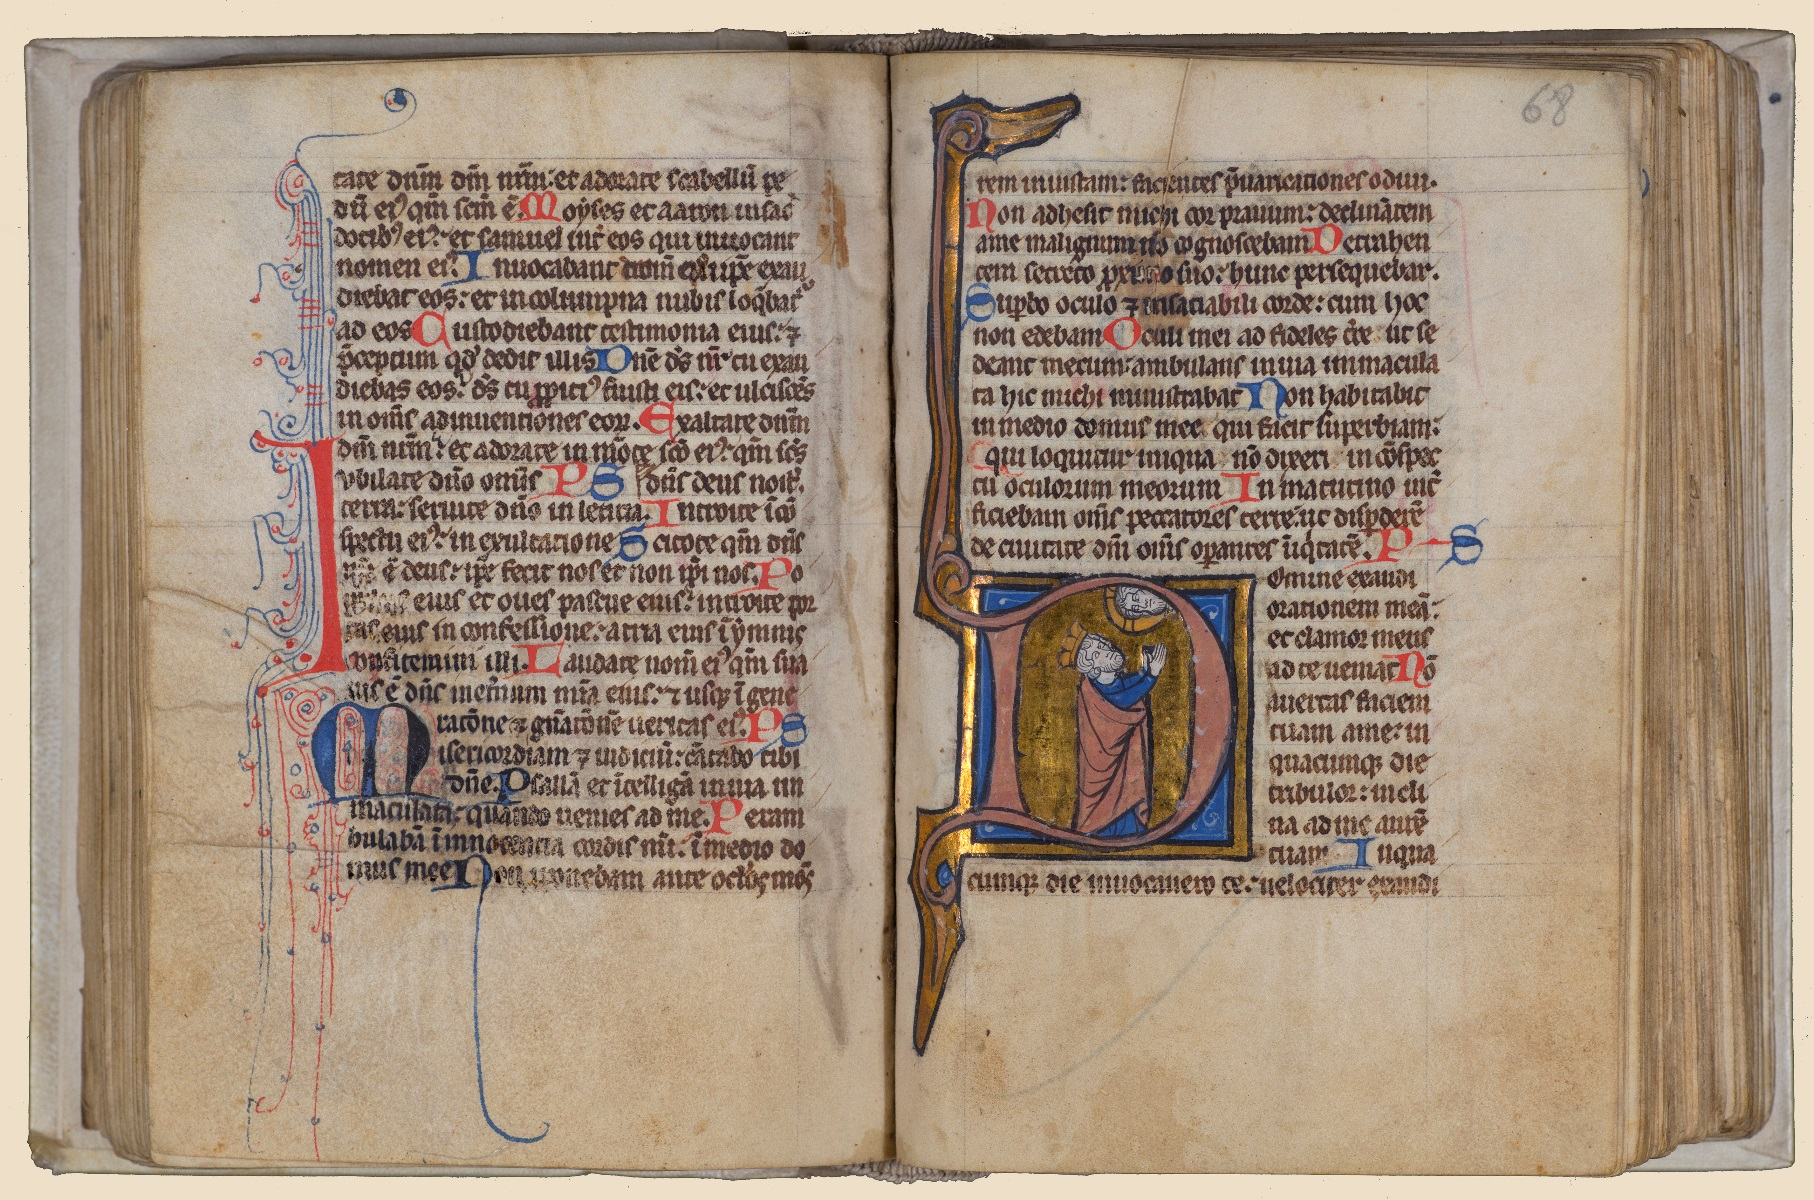 tate dnm̄ dm̄ nr̄m: et adorate scabellū pe
dū ei' qm̄ scm̄ ē. Moyses et aaron in sac̄
dotib' ei': et samuel int̄ eos qui inuocant
nomen ei': Inuocabant dnm̄ et ip̄e exau
diebat eos: et in columpna nubis loq̄bat̄
ad eos Custodiebant testimonia eius: ⁊
p̄ceptum qd̄ dedit illis Dn̄e ds̄ nr̄ tu exau
diebas eos: ds̄ tu ppici' fuisti eis: et ulciscēs
in om̄s adinuentiōnes eor̄. Exaltate dnm̄
dm̄ nr̄m: et adorate in mōte sc̄o ei': qm̄ sc̄s
dn̄s deus nost̄. PS
Iubilate dn̄o omīs
terra: seruite dn̄o in leticia. Introite ī cō
spectu ei': in exultatione Scitote qm̄ dn̄s
ip̄e ē deus: ip̄e fecit nos et non ip̄i nos. Po
pulus eius et oues pascue eius: introite por
tas eius in confessione: atria eius ī ymnis
confitemini illi. Laudate nom̄ ei' qm̄ sua
uis ē dn̄s in et̄num mīa eius: ⁊ usq̨ ī gene
ratōne ⁊ gn̄atōnē ueritas ei'. PS
Misericordiam ⁊ iudiciū: cātabo tibi
dn̄e. Psallā et ītelligā in uia im
maculata: quando uenies ad me. Peram
bulabā ī innocencia cordis mī: ī medio do
mus mee Non ꝓponebam ante oclōs mōs
68
rem iniustam: facientes p̄uaricationes odiui.
Non adhesit michi cor prauum: declinātem
a me malignum nō cognoscebam Detrahen
tem secreto proximo suo: hunc persequebar.
Supbo oculo ⁊ insaciabili corde: cum hoc
non edebam Oculi mei ad fideles tr̄e ut se
deant mecum: ambulans in uia immacula
ta hic michi ministrabat Non habitabit
in medio domus mee qui facit superbiam:
qui loquitur iniqua nō direxi in cōspec
tu oculorum meorum In matutino int̄
ficiebam om̄s peccatores terre: ut disp̄derē
de ciuitate dm̄ om̄s oꝑantes īiq̄tatē. PS
Domine exaudi
orationem meā:
et clamor meus
ad te ueniat Nō
auertas faciem
tuam a me: in
quacunq̨ die
tribulor: incli
na ad me aurē
tuam In qua
cunq̨ die inuocauero te: uelociter exaudi